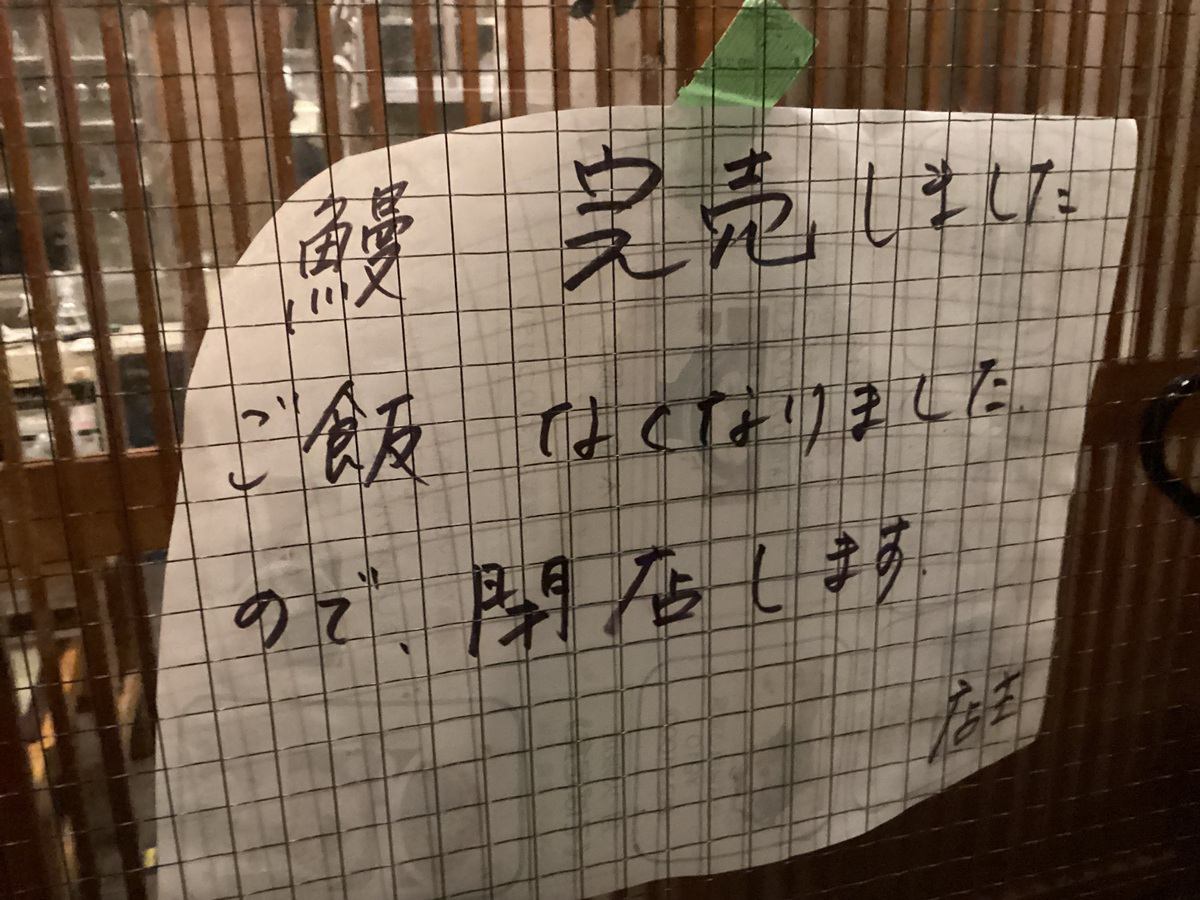 鰻 完売しました
ご飯 なくなりました
ので、閉店します.
店主